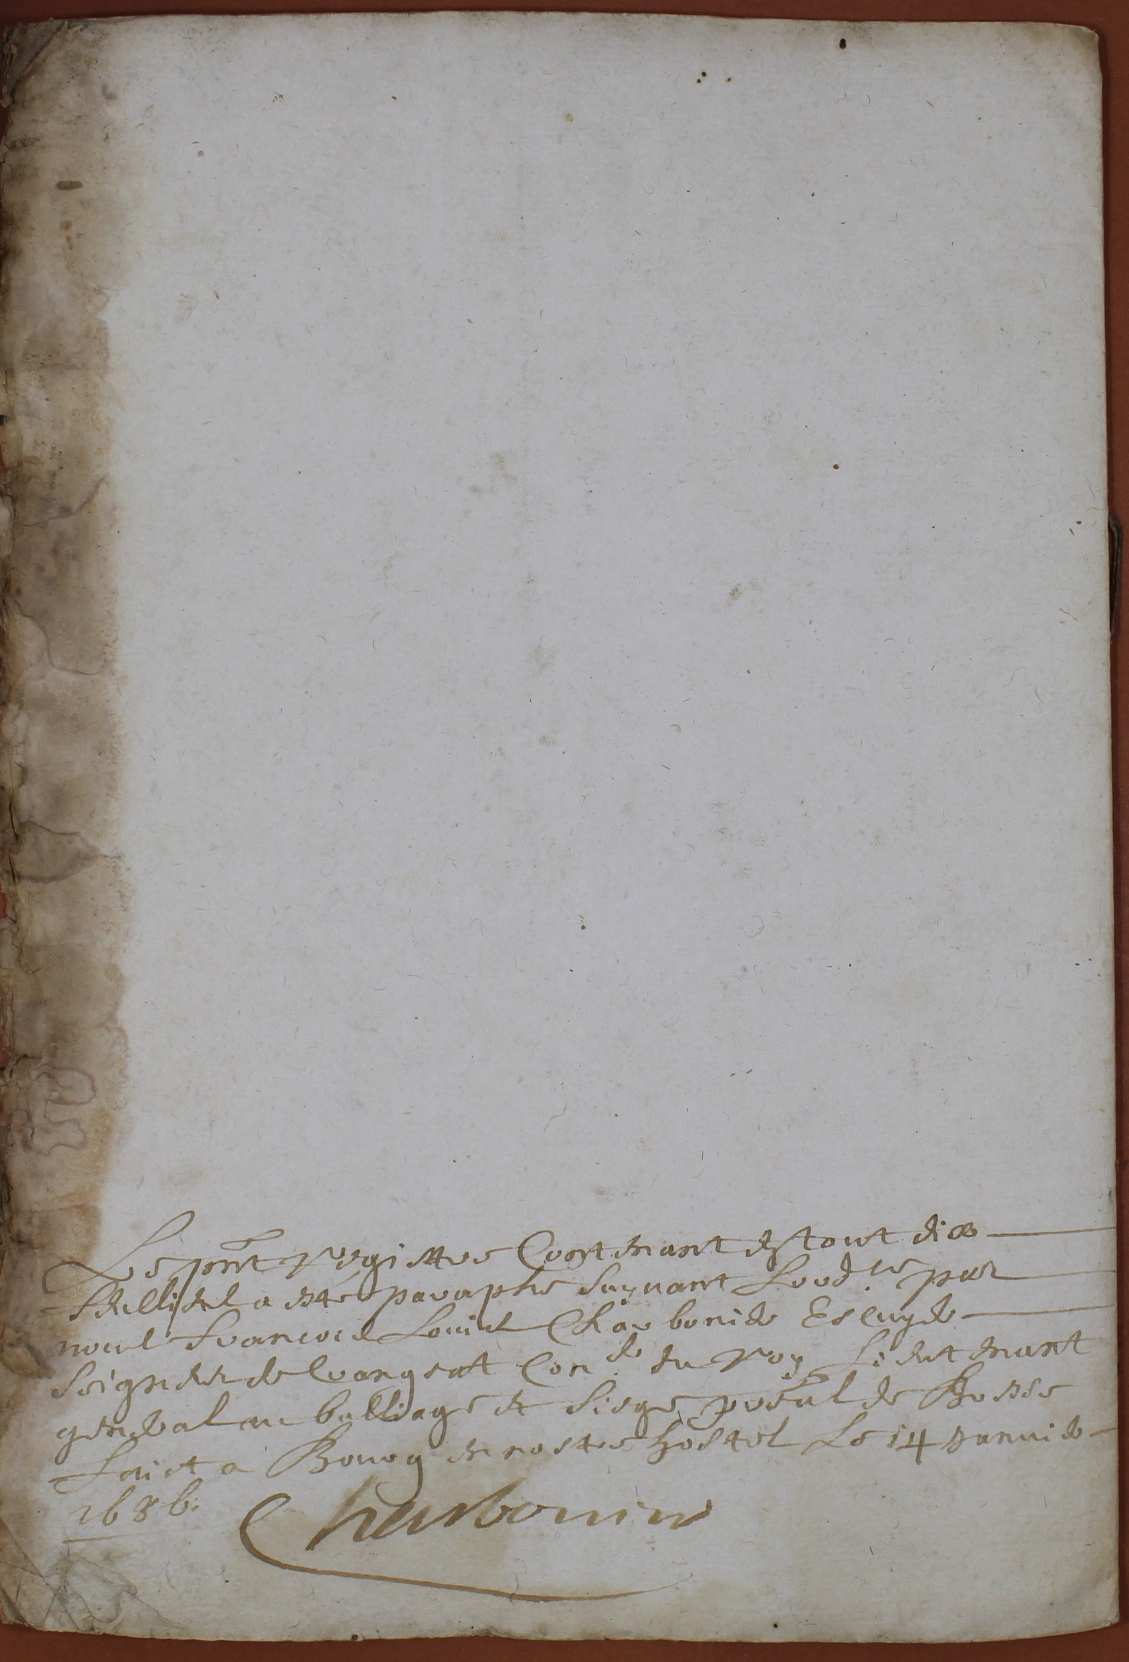 Le pnt registre Contenant en tout dix
feuilliets a esté paraphé suyuant Lord.ce par
nous francois Louis Charbonier Escuyer
Seigneur de Crangeat Con.er du roy Lieutenant
general au balliage et siege presal de Bresse
faict a Bourg en nostre hostel Le 14 Januier
1686.
Charbonier